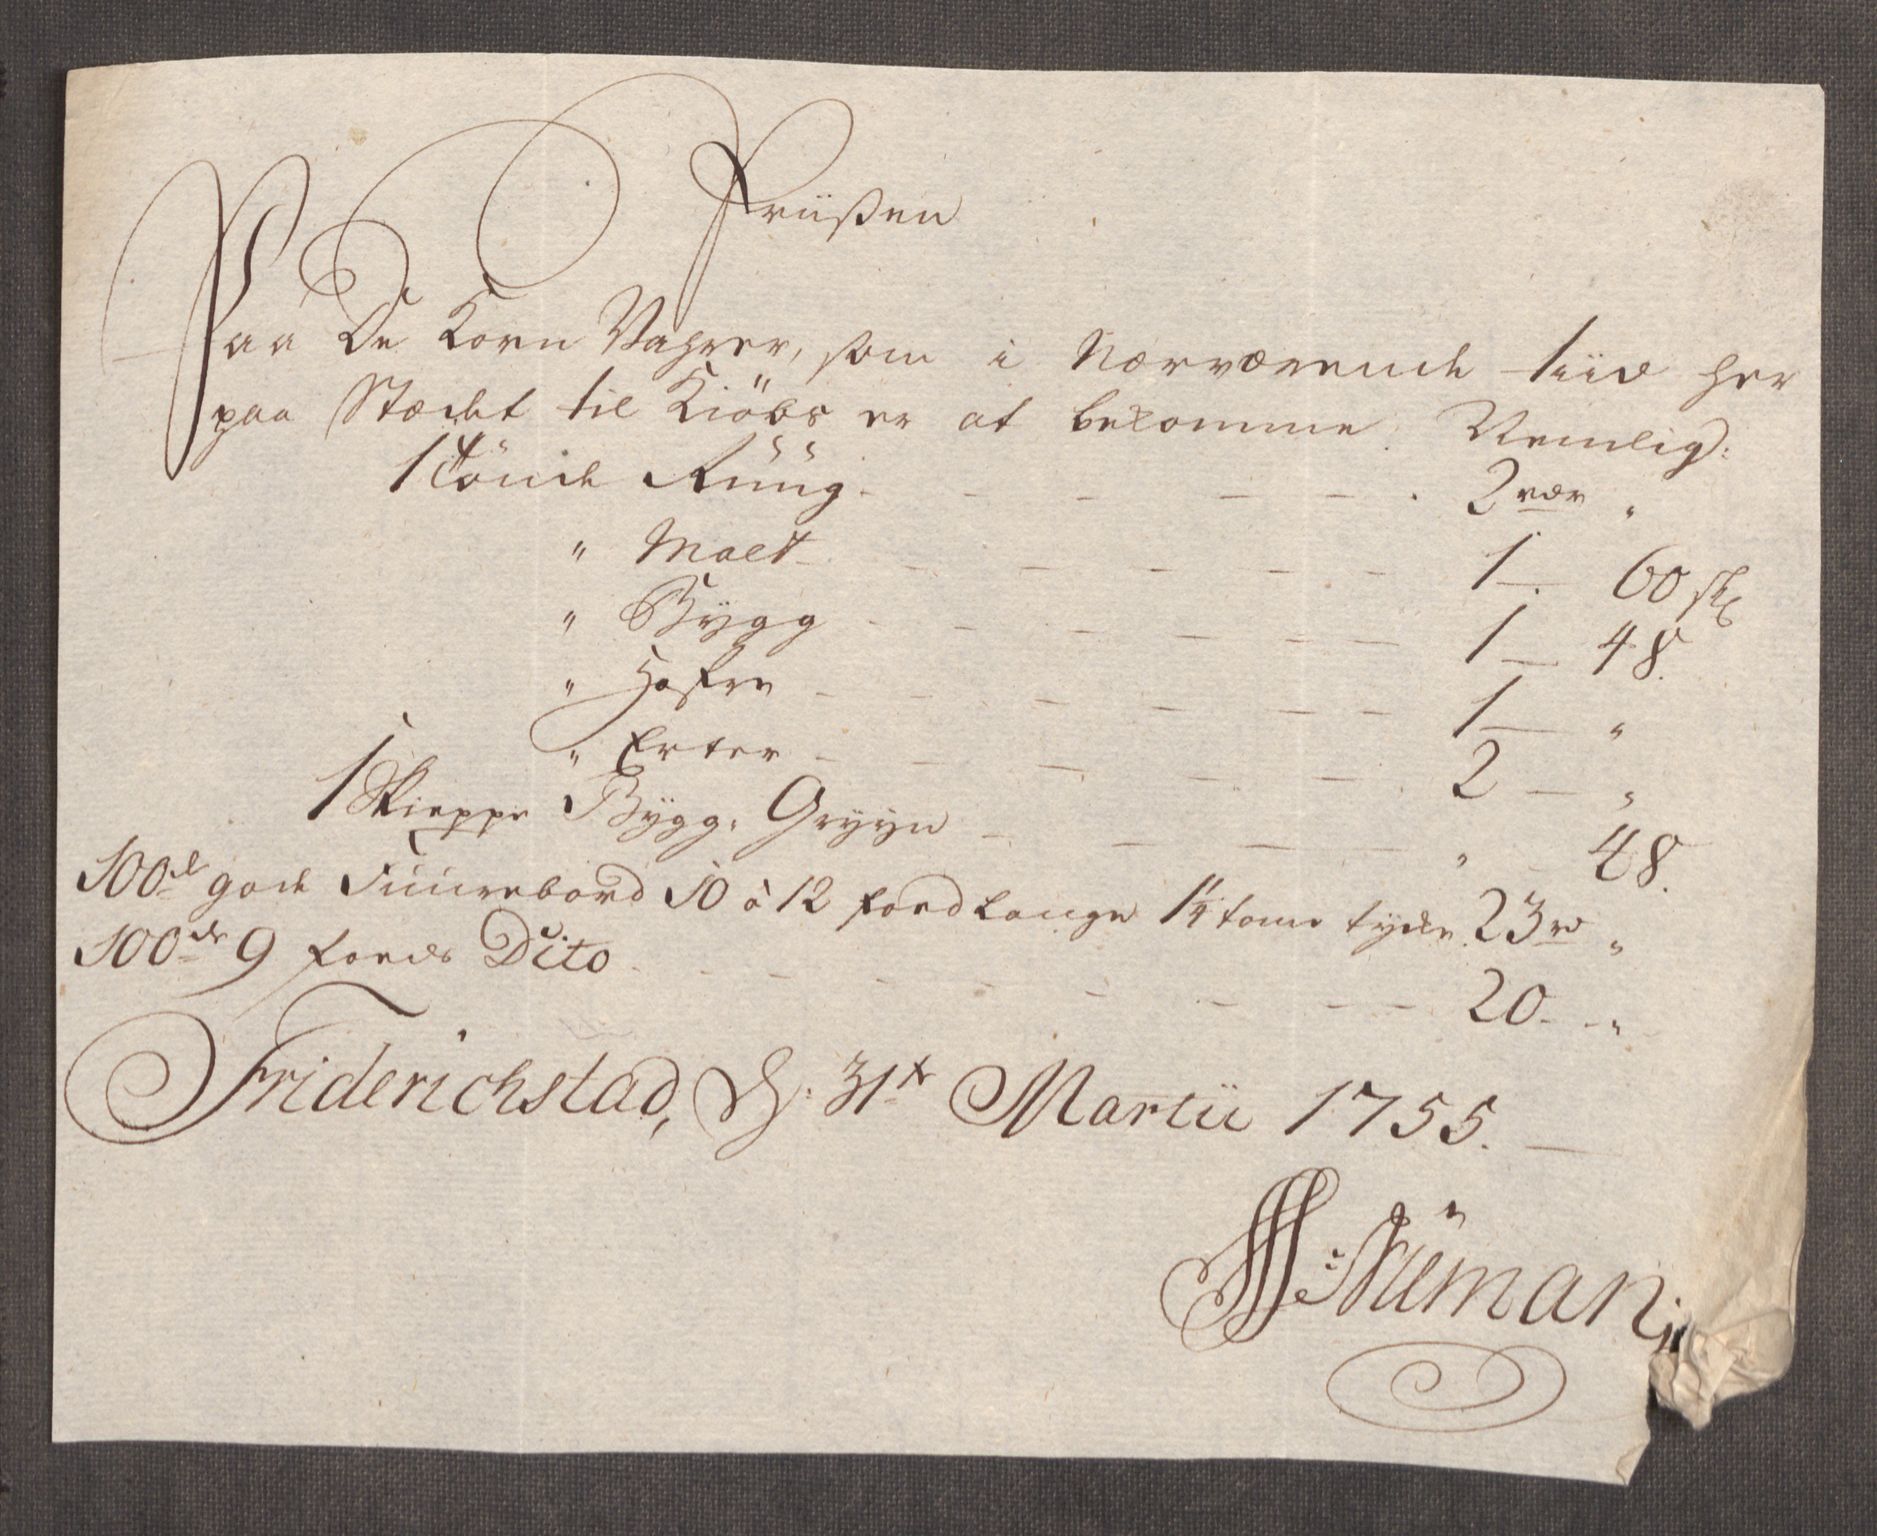 Priißen
Paa De Korn Vahrer, som i Nærværende tiid her
paa Stædet til Kiöbs er at bekomme. Nemlig:
1 Tönde Rüüg - - - - - 2 rdr "
" Malt - - - - - 1 — 60 sk
" Bÿgg - - - - - 1 — 48.
" Hafre - - - - - 1 — "
" Erter - - - - - 2 — "
1 Skieppe Bÿgg: Gryyn - - - - " 48.
100de gode Fuurebord 10 à 12 foed Lange 1 1/4 tome tycke 23 rd "
100de 9 foeds Dito - - - - - 20 - - "
Friderichstad, d: 31te Martii 1755. —
Nüman